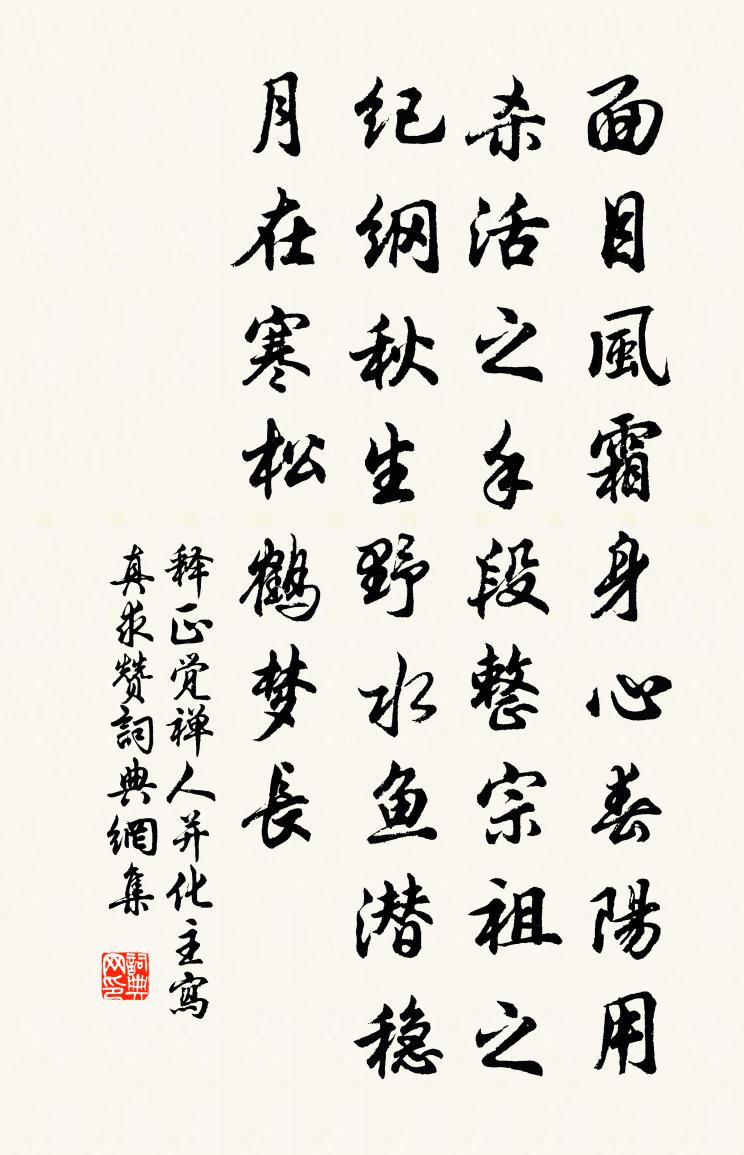 面目風霜身心春陽用
杀活之手段整宗祖之
纪纲秋生野水鱼潜稳
月在寒松鶴梦長
释正觉禅人并化主寫
真求赞詞典網集
詞典
网印